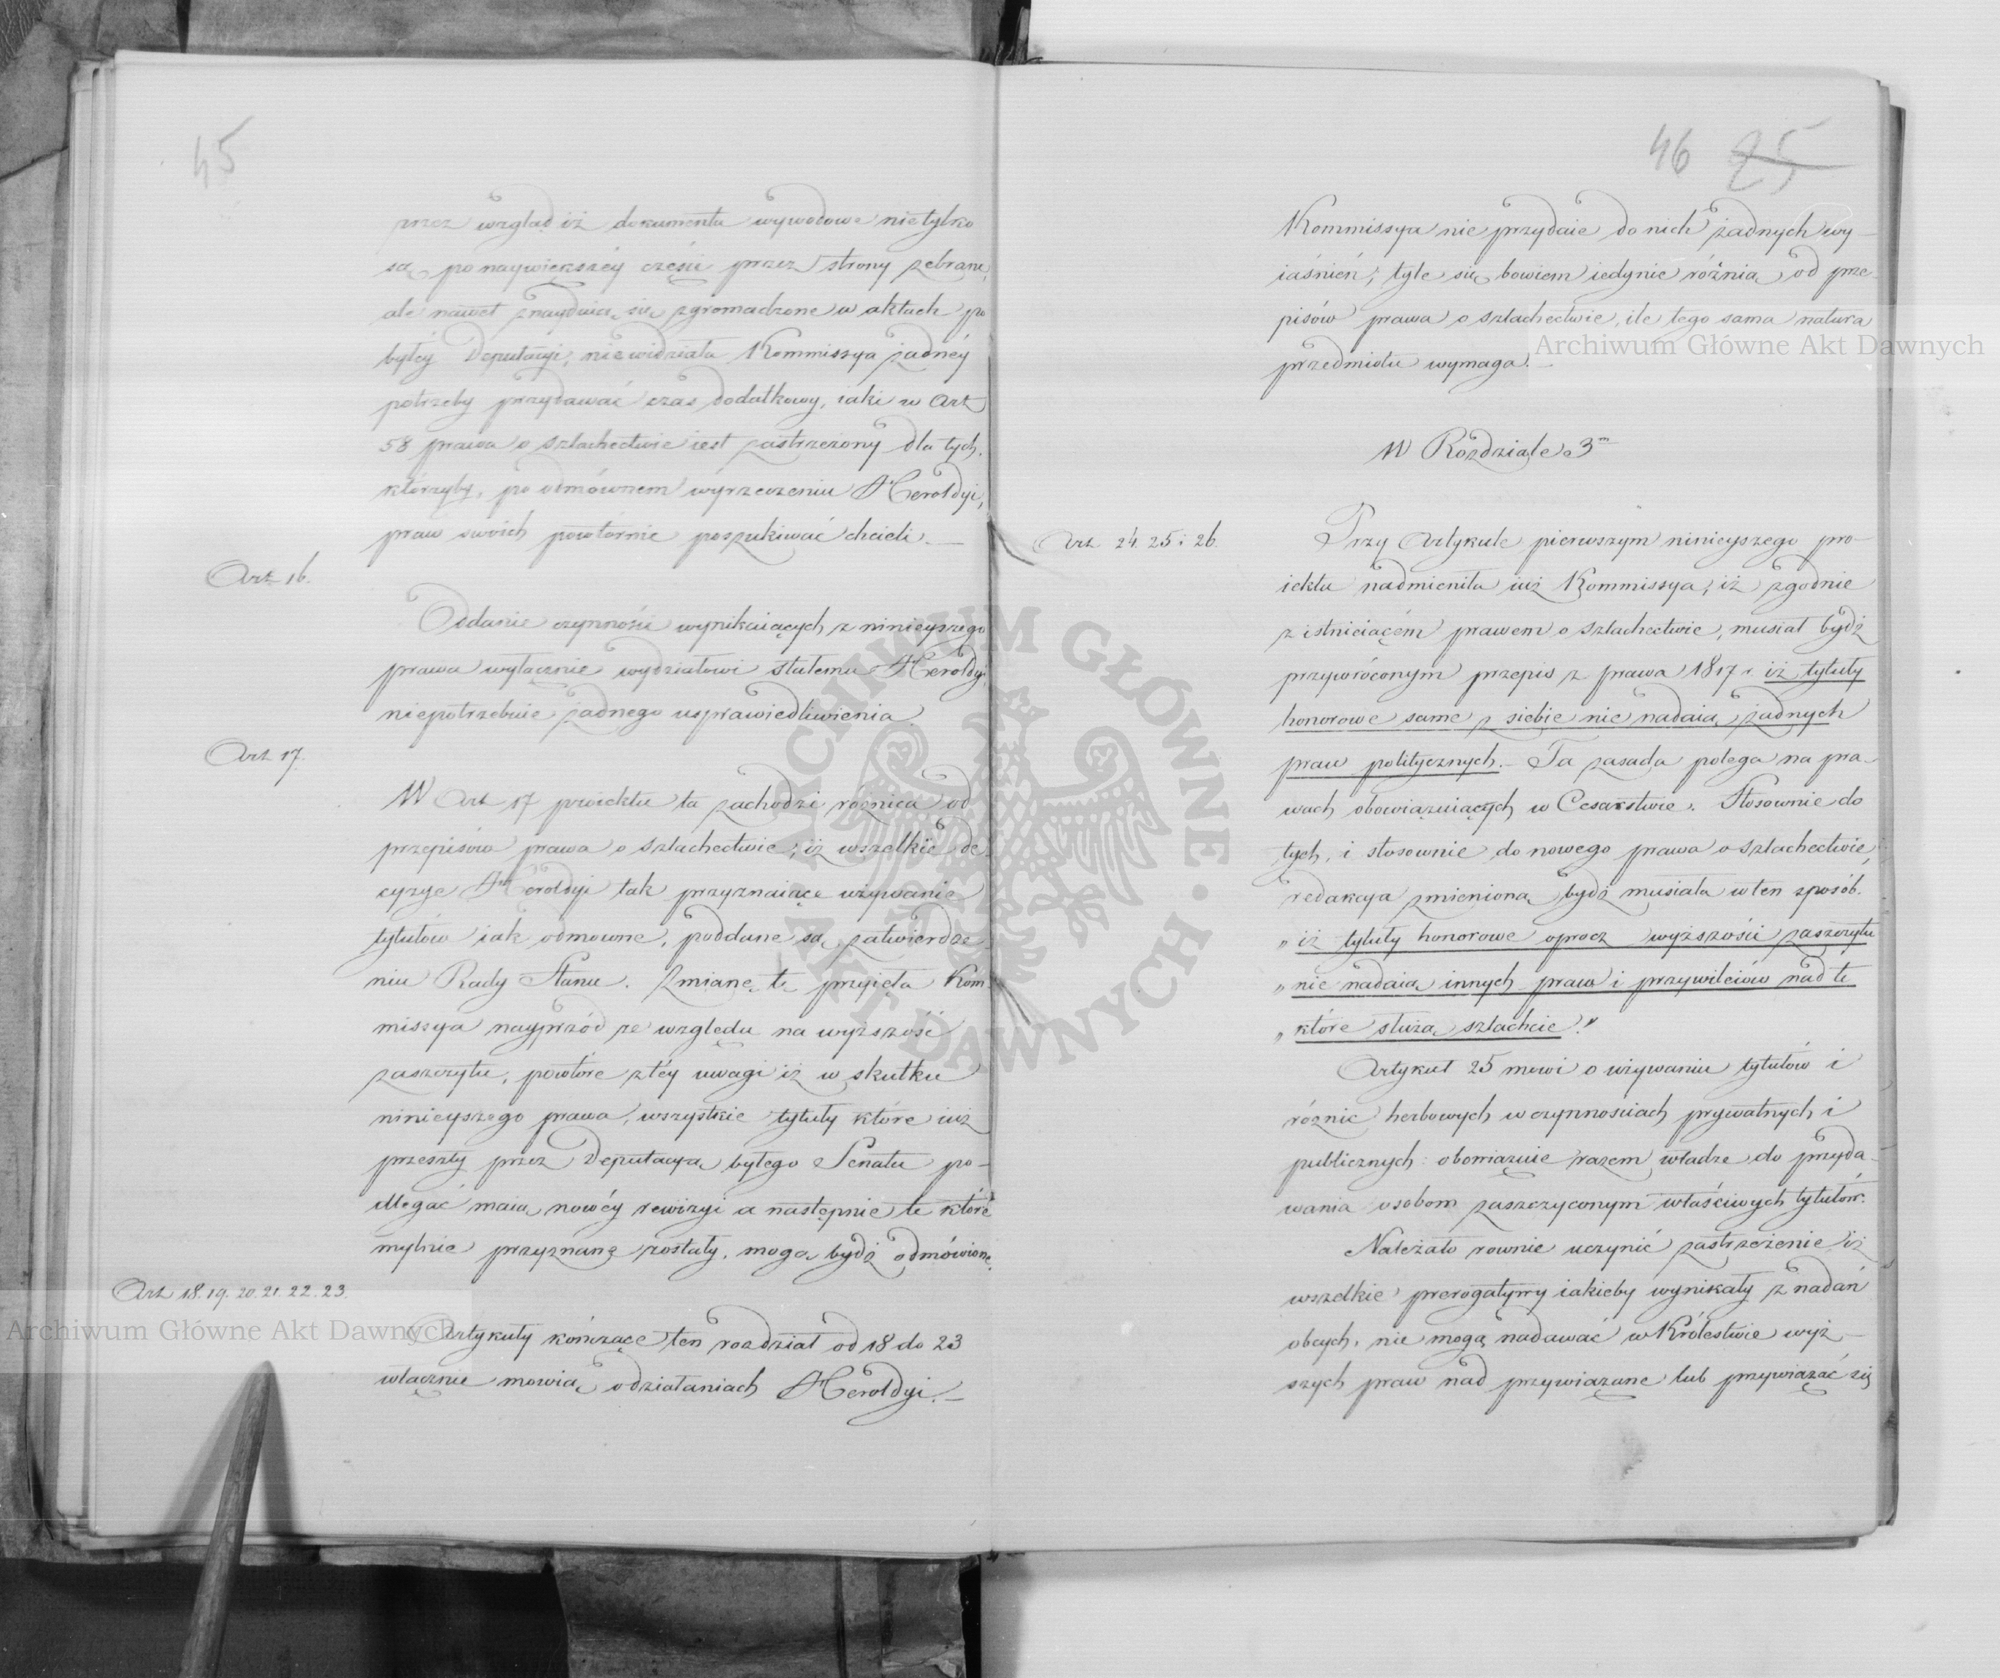 45
przez wzgląd iż dokumenta wywodowe nietylko
są po naywiększéy części przez strony zebrane,
ale nawet znayduią się zgromadzone w aktach po
byłéy Deputacyi, niewidziała Kommissya żadnéy
potrzeby przydawać czas dodatkowy, iaki w Art
58 prawa o szlachectwie iest zastrzeżony dla tych,
którzyby, po odmównem wyrzeczeniu Heroldyi,
praw swoich powtórnie poszukiwać chcieli. —
Art 16.
Oddanie czynności wynikaiących z ninieyszego
prawa wyłącznie wydziałowi stałemu Heroldyi,
niepotrzebuie żadnego usprawiedliwienia.
Art 17.
W Art 17 proiektu ta zachodzi różnica od
przepisów prawa o szlachectwie, iż wszelkie de-
cyzye Heroldyi tak przyznaiące używanie
tytułów iak odmowne, poddane są zatwierdze-
niu Rady Stanu. Zmianę tę przyięła Kom-
missya nayprzód ze względu na wyższość
zaszczytu, powtóre z téy uwagi iż w skutku
ninieyszego prawa, wszystkie tytuły które iuż
przeszły przez Deputacyą byłego Senatu po-
dlegać maią nowéy rewizyi a następnie te które
mylnie przyznane zostały, mogą bydź odmówione.
Art 18. 19. 20. 21. 22. 23.
Artykuły kończące ten rozdział od 18 do 23
włącznie mowią o działaniach Heroldyi. —
46 25
Kommissya nie przydaie do nich żadnych wy-
iaśnień; tyle się bowiem iedynie różnią od prze-
pisów prawa o szlachectwie, ile tego sama natura
przedmiotu wymaga. —
W Rozdziale 3m
Art 24. 25 i 26.
Przy Artykule pierwszym ninieyszego pro-
iektu nadmieniła iuż Kommissya, iż zgodnie
z istnieiącém prawem o szlachectwie, musiał bydź
przywróconym przepis z prawa 1817 r. iż tytuły
honorowe same z siebie nie nadaią żadnych
praw politycznych. — Ta zasada polega na pra-
wach obowiązuiących w Cesarstwie. Stosownie do
tych, i stosownie do nowego prawa o szlachectwie
redakcya zmienioną bydź musiała w ten sposób.
„ iż tytuły honorowe oprocz wyższości zaszczytu
„ nie nadaią innych praw i przywileiów nad te
„ które służą szlachcie."
Artykuł 25 mowi o używaniu tytułów i
różnic herbowych w czynnościach prywatnych i
publicznych: obowiązuie razem władze do przyda-
wania osobom zaszczyconym właściwych tytułów.
Należało rownie uczynić zastrzeżenie iż
wszelkie prerogatywy iakieby wynikały z nadań
obcych, nie mogą nadawać w Królestwie wyż-
szych praw nad przywiązane lub przywiązać się
Archiwum Główne Akt Dawnych
Archiwum Główne Akt Dawnych
ARCHIWUM GŁÓWNE · AKT DAWNYCH ·